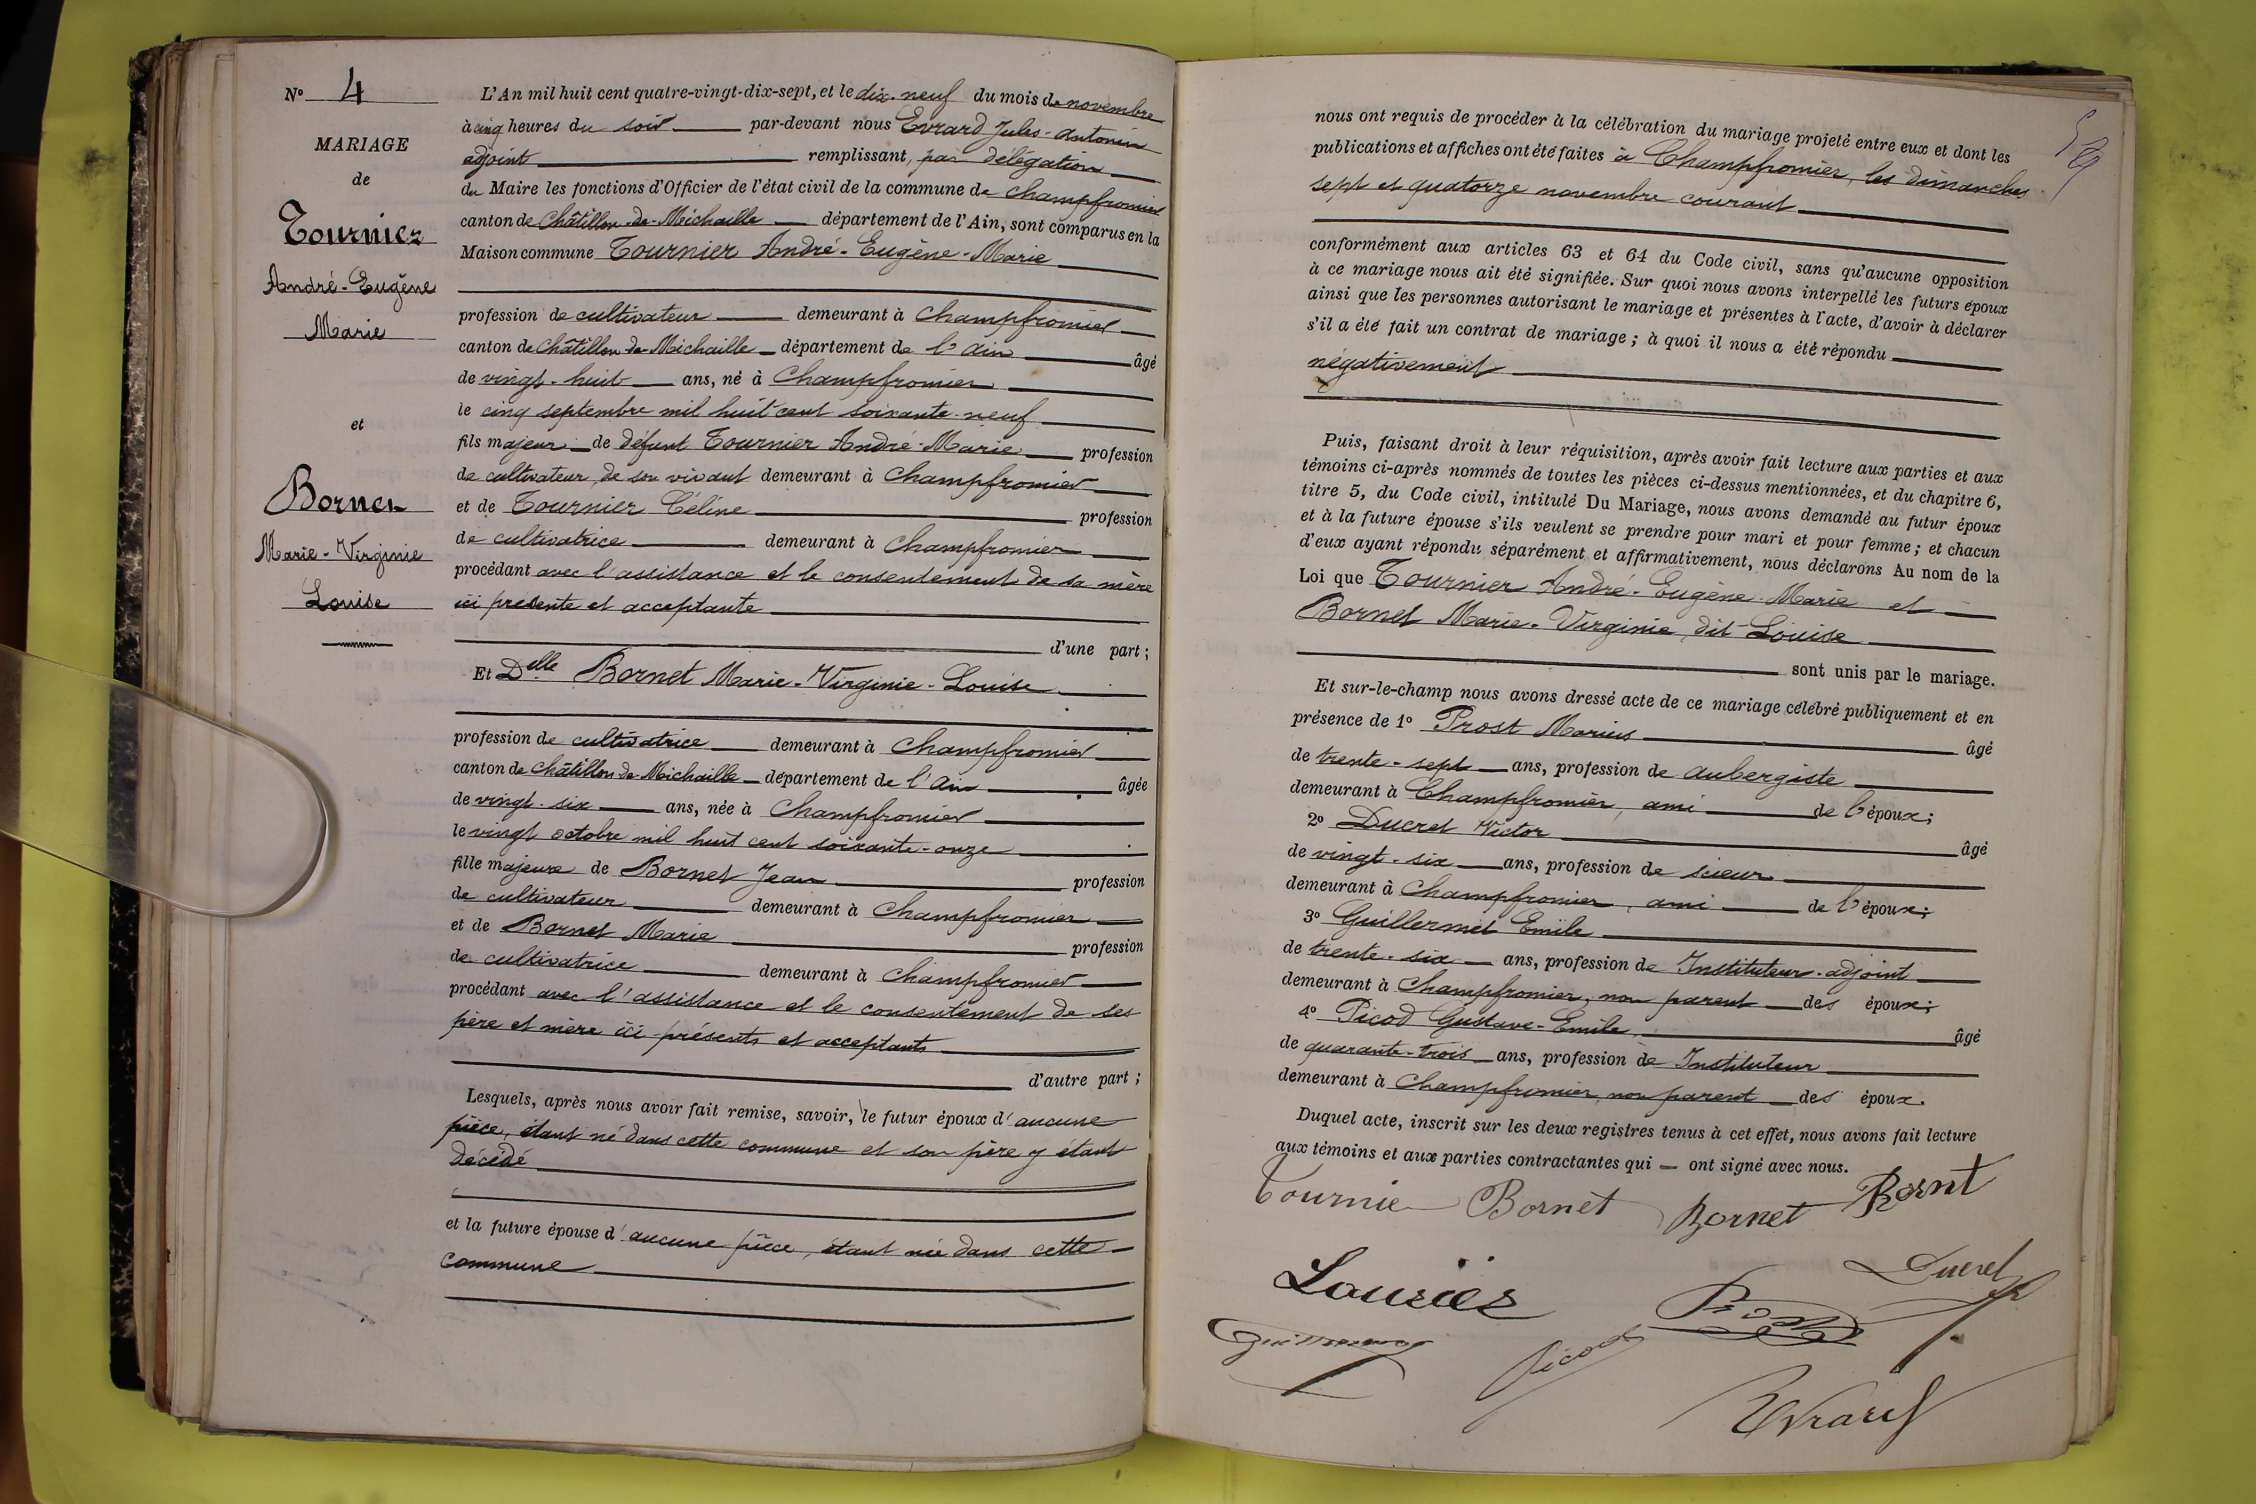 N° 4
MARIAGE
de
Tournier
André-Eugène
Marie
et
Bornet
Marie-Virginie
Louise
L'An mil huit cent quatre-vingt-dix-sept, et le dix-neuf du mois de novembre
à cinq heures du soir par-devant nous Evrard Jules-Antonin
adjoint remplissant, par délégation
du Maire les fonctions d'Officier de l'état civil de la commune de Champfromier
canton de Châtillon-de-Michaille département de l'Ain, sont comparus en la
Maison commune Tournier André-Eugène-Marie
profession de cultivateur demeurant à Champfromier
canton de Châtillon-de-Michaille département de l'Ain âgé
de vingt-huit ans, né à Champfromier
le cinq septembre mil huit cent soixante-neuf
fils majeur de défunt Tournier André-Marie profession
de cultivateur, de son vivant demeurant à Champfromier
et de Tournier Céline profession
de cultivatrice demeurant à Champfromier
procédant avec l'assistance et le consentement de sa mère
ici présente et acceptante
d'une part ;
Et Delle Bornet Marie-Virginie-Louise
profession de cultivatrice demeurant à Champfromier
canton de Châtillon-de-Michaille département de l'Ain âgée
de vingt-six ans, née à Champfromier
le vingt octobre mil huit cent soixante-onze
fille majeure de Bornet Jean profession
de cultivateur demeurant à Champfromier
et de Bornet Marie profession
de cultivatrice demeurant à Champfromier
procédant avec l'assistance et le consentement de ses
père et mère ici présents et acceptants
d'autre part ;
Lesquels, après nous avoir fait remise, savoir, le futur époux d'aucune
pièce, étant né dans cette commune et son père y étant
décédé
et la future épouse d'aucune pièce, étant née dans cette
commune
nous ont requis de procéder à la célébration du mariage projeté entre eux et dont les
publications et affiches ont été faites à Champfromier, les dimanches
sept et quatorze novembre courant
conformément aux articles 63 et 64 du Code civil, sans qu'aucune opposition
à ce mariage nous ait été signifiée. Sur quoi nous avons interpellé les futurs époux
ainsi que les personnes autorisant le mariage et présentes à l'acte, d'avoir à déclarer
s'il a été fait un contrat de mariage ; à quoi il nous a été répondu
négativement
Puis, faisant droit à leur réquisition, après avoir fait lecture aux parties et aux
témoins ci-après nommés de toutes les pièces ci-dessus mentionnées, et du chapitre 6,
titre 5, du Code civil, intitulé Du Mariage, nous avons demandé au futur époux
et à la future épouse s'ils veulent se prendre pour mari et pour femme ; et chacun
d'eux ayant répondu séparément et affirmativement, nous déclarons Au nom de la
Loi que Tournier André-Eugène-Marie et
Bornet Marie-Virginie, dit Louise
sont unis par le mariage.
Et sur-le-champ nous avons dressé acte de ce mariage célébré publiquement et en
présence de 1° Prost Marius âgé
de trente-sept ans, profession de aubergiste
demeurant à Champfromier, ami de l'époux ;
2° Ducret Victor âgé
de vingt-six ans, profession de scieur
demeurant à Champfromier, ami de l'époux ;
3° Guillermet Emile
de trente-six ans, profession de Instituteur-adjoint
demeurant à Champfromier, non parent des époux ;
4° Picod Gustave-Emile, âgé
de quarante-trois ans, profession de Instituteur
demeurant à Champfromier, non parent des époux.
Duquel acte, inscrit sur les deux registres tenus à cet effet, nous avons fait lecture
aux témoins et aux parties contractantes qui ont signé avec nous.
Tournie Bornet Bornet Bornt
Ducret
Prost
Guillermet Picod
Evrard